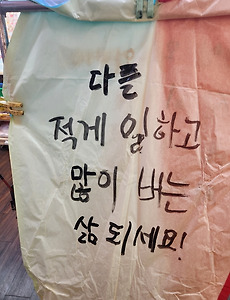 다들
적게 일하고
많이 버는
삶 되세요!